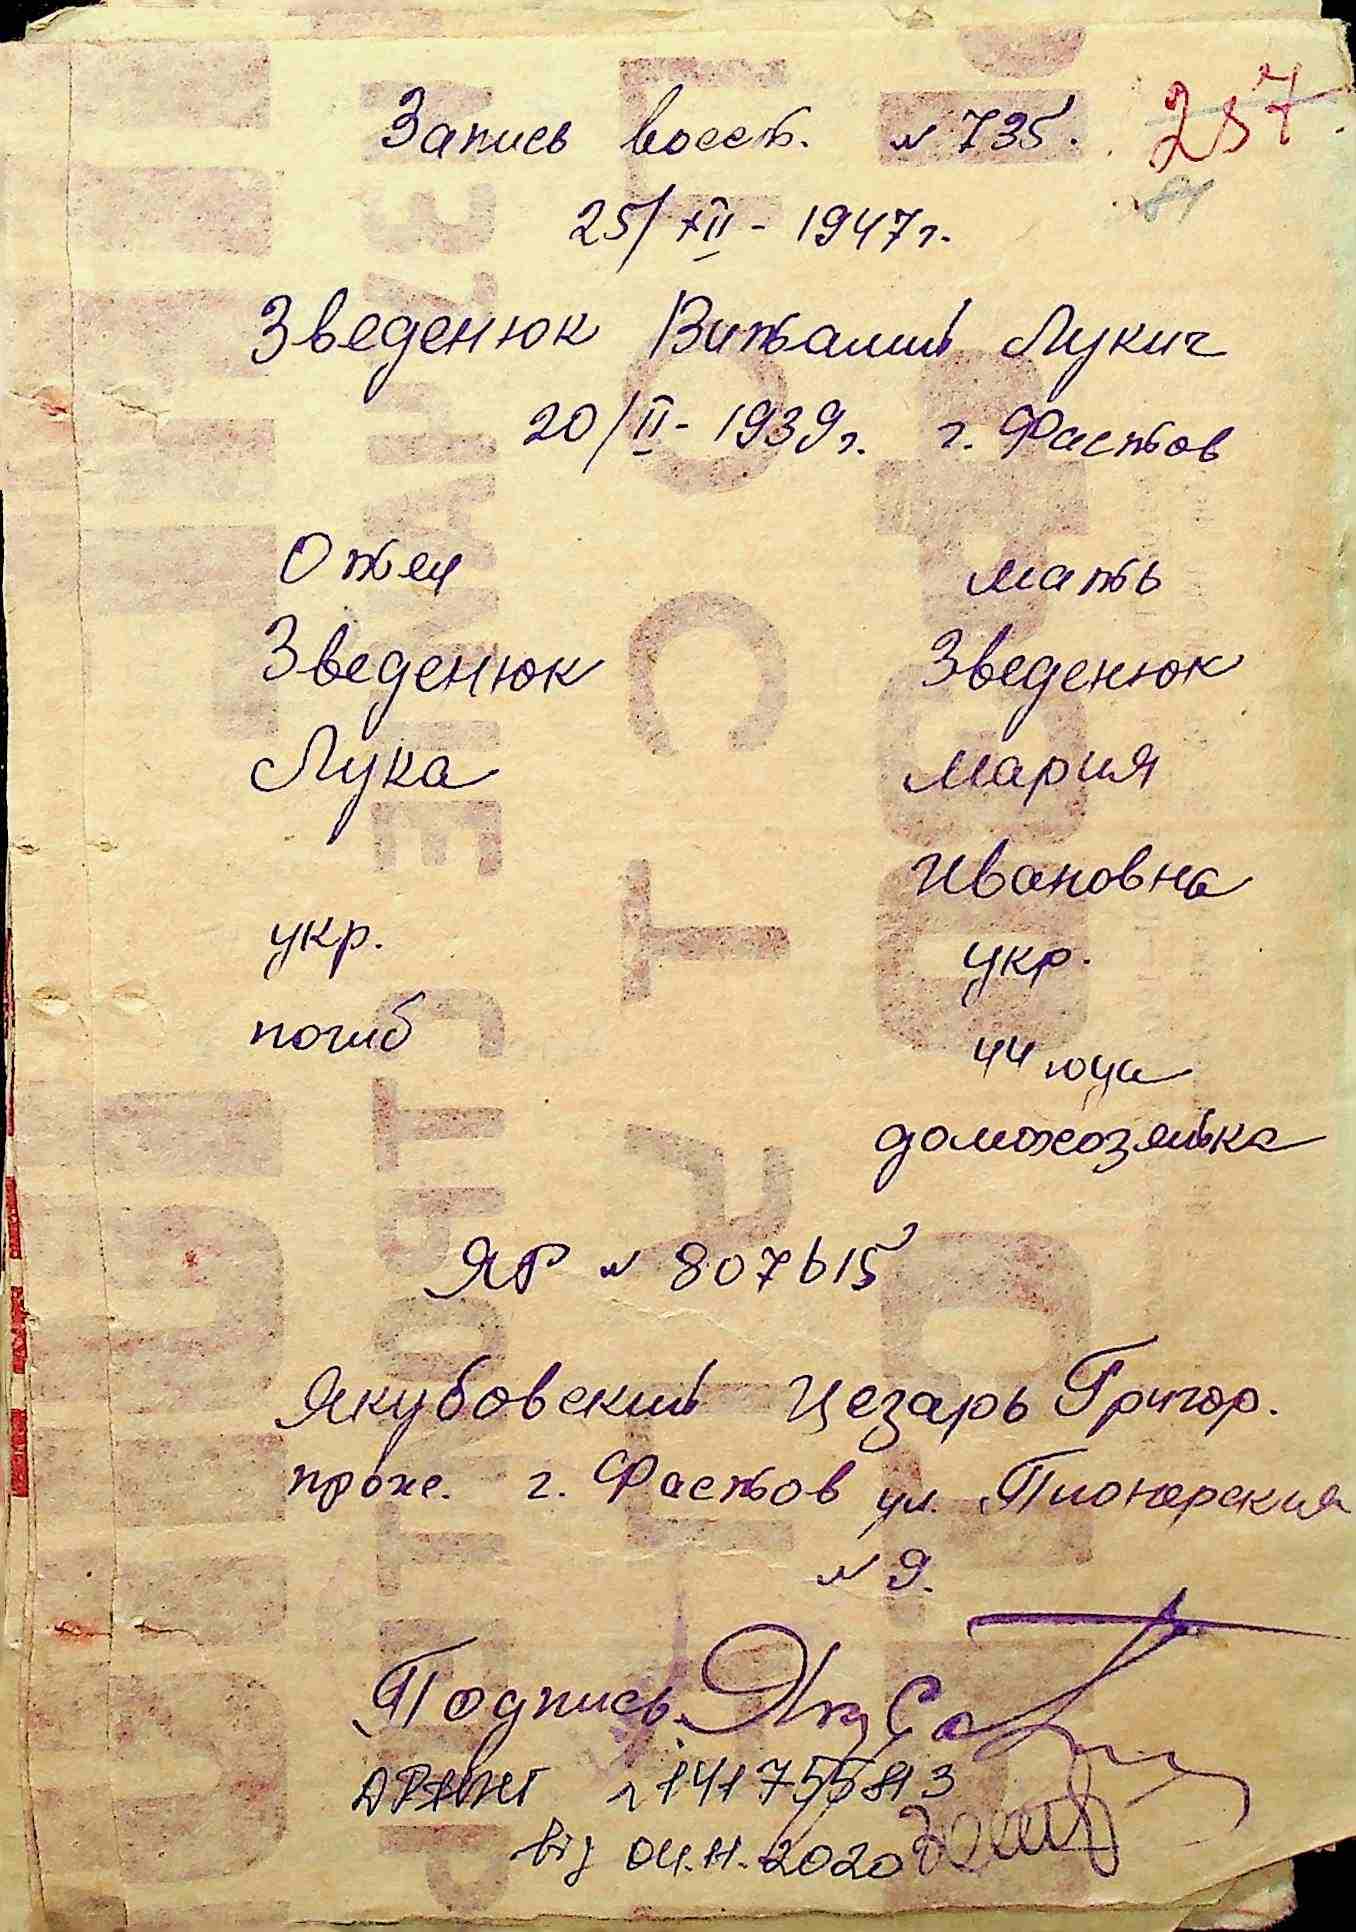 Запись восст. № 735. 257
81
25/XII - 1947 г.
Зведенюк Виталий Лукич
20/II - 1939 г. г. Фастов
Отец мать
Зведенюк Зведенюк
Лука Мария
Ивановна
укр. укр.
погиб 44 года
домохозяйка
ЯР № 807615
Якубовский Цезарь Григор.
прож. г. Фастов ул. Пионерская
№ 9.
Подпись
від 04.11.2020